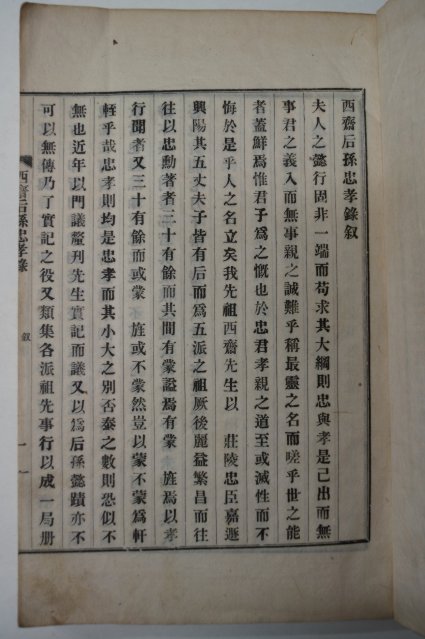 西齋后孫忠孝錄叙
夫人之懿行固非一端而苟求其大綱則忠與孝是已出而無
事君之義入而無事親之誠難乎稱最靈之名而嗟乎世之能
者蓋鮮焉惟君子爲之慨也於忠君孝親之道至或滅性而不
悔於是乎人之名立矣我先祖西齋先生以 莊陵忠臣嘉遯
興陽其五丈夫子皆有后而爲五派之祖厥後麗益繁昌而往
往以忠勳著者三十有餘而其間有蒙謚焉有蒙 旌焉以孝
行聞者又三十有餘而或蒙 旌或不蒙然豈以蒙不蒙爲軒
輊乎哉忠孝則均是忠孝而其小大之別否泰之數則恐似不
無也近年以門議釐刊先生實記而議又以爲后孫懿蹟亦不
可以無傳乃了實記之役又類集各派祖先事行以成一局册
西齋后孫忠孝錄 叙 一